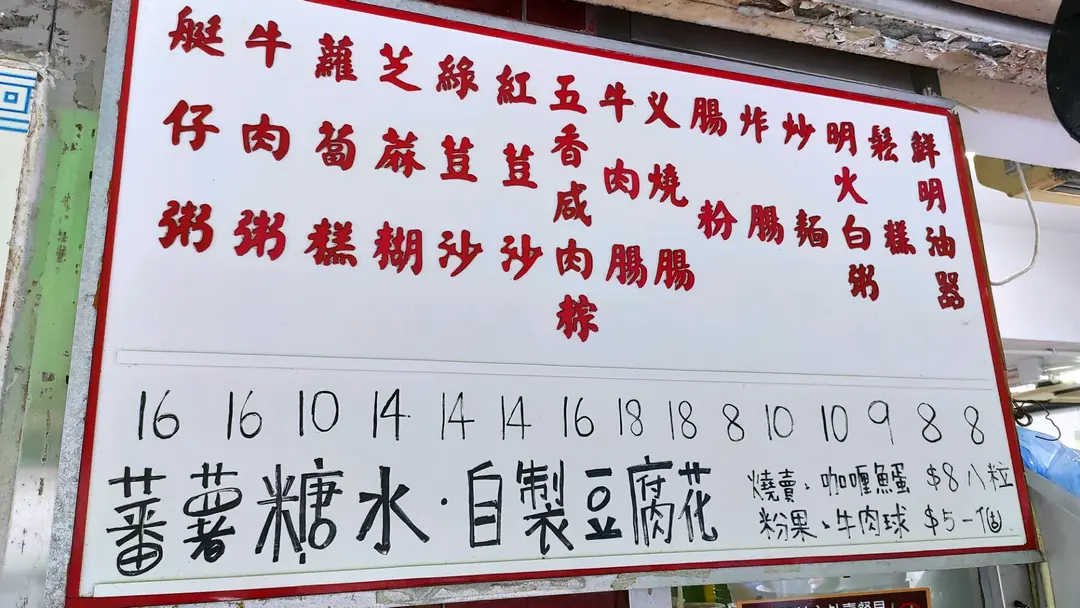 艇仔粥
牛肉粥
蘿蔔糕
芝蔴糊
綠荳沙
紅荳沙
五香咸肉粽
牛肉腸
义燒腸
腸粉
炸腸
炒麵
明火白粥
鬆糕
鮮明油器
16 16 10 14 14 14 16 18 18 8 10 10 9 8 8
蕃薯糖水·自製豆腐花
燒賣、咖喱魚蛋 $8八粒
粉果、牛肉球 $5一個